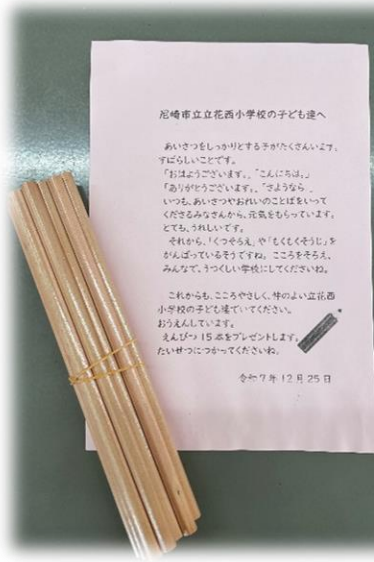 尼崎市立立花西小学校の子ども達へ
あいさつをしっかりとする子がたくさんいます、
すばらしいことです。
「おはようございます。」「こんにちは。」
「ありがとうございます。」「さようなら」
いつも、あいさつやおれいのことばをいって
くださるみなさんから、元気をもらっています。
とても、うれしいです。
それから、「くつそろえ」や「もくもくそうじ」を
がんばっているそうですね。こころをそろえ、
みんなで、うつくしい学校にしてくださいね。
これからも、こころやさしく、仲のよい立花西
小学校の子ども達でいてください。
おうえんしています。
えんぴつ15本をプレゼントします。
たいせつにつかってくださいね。
令和7年12月25日